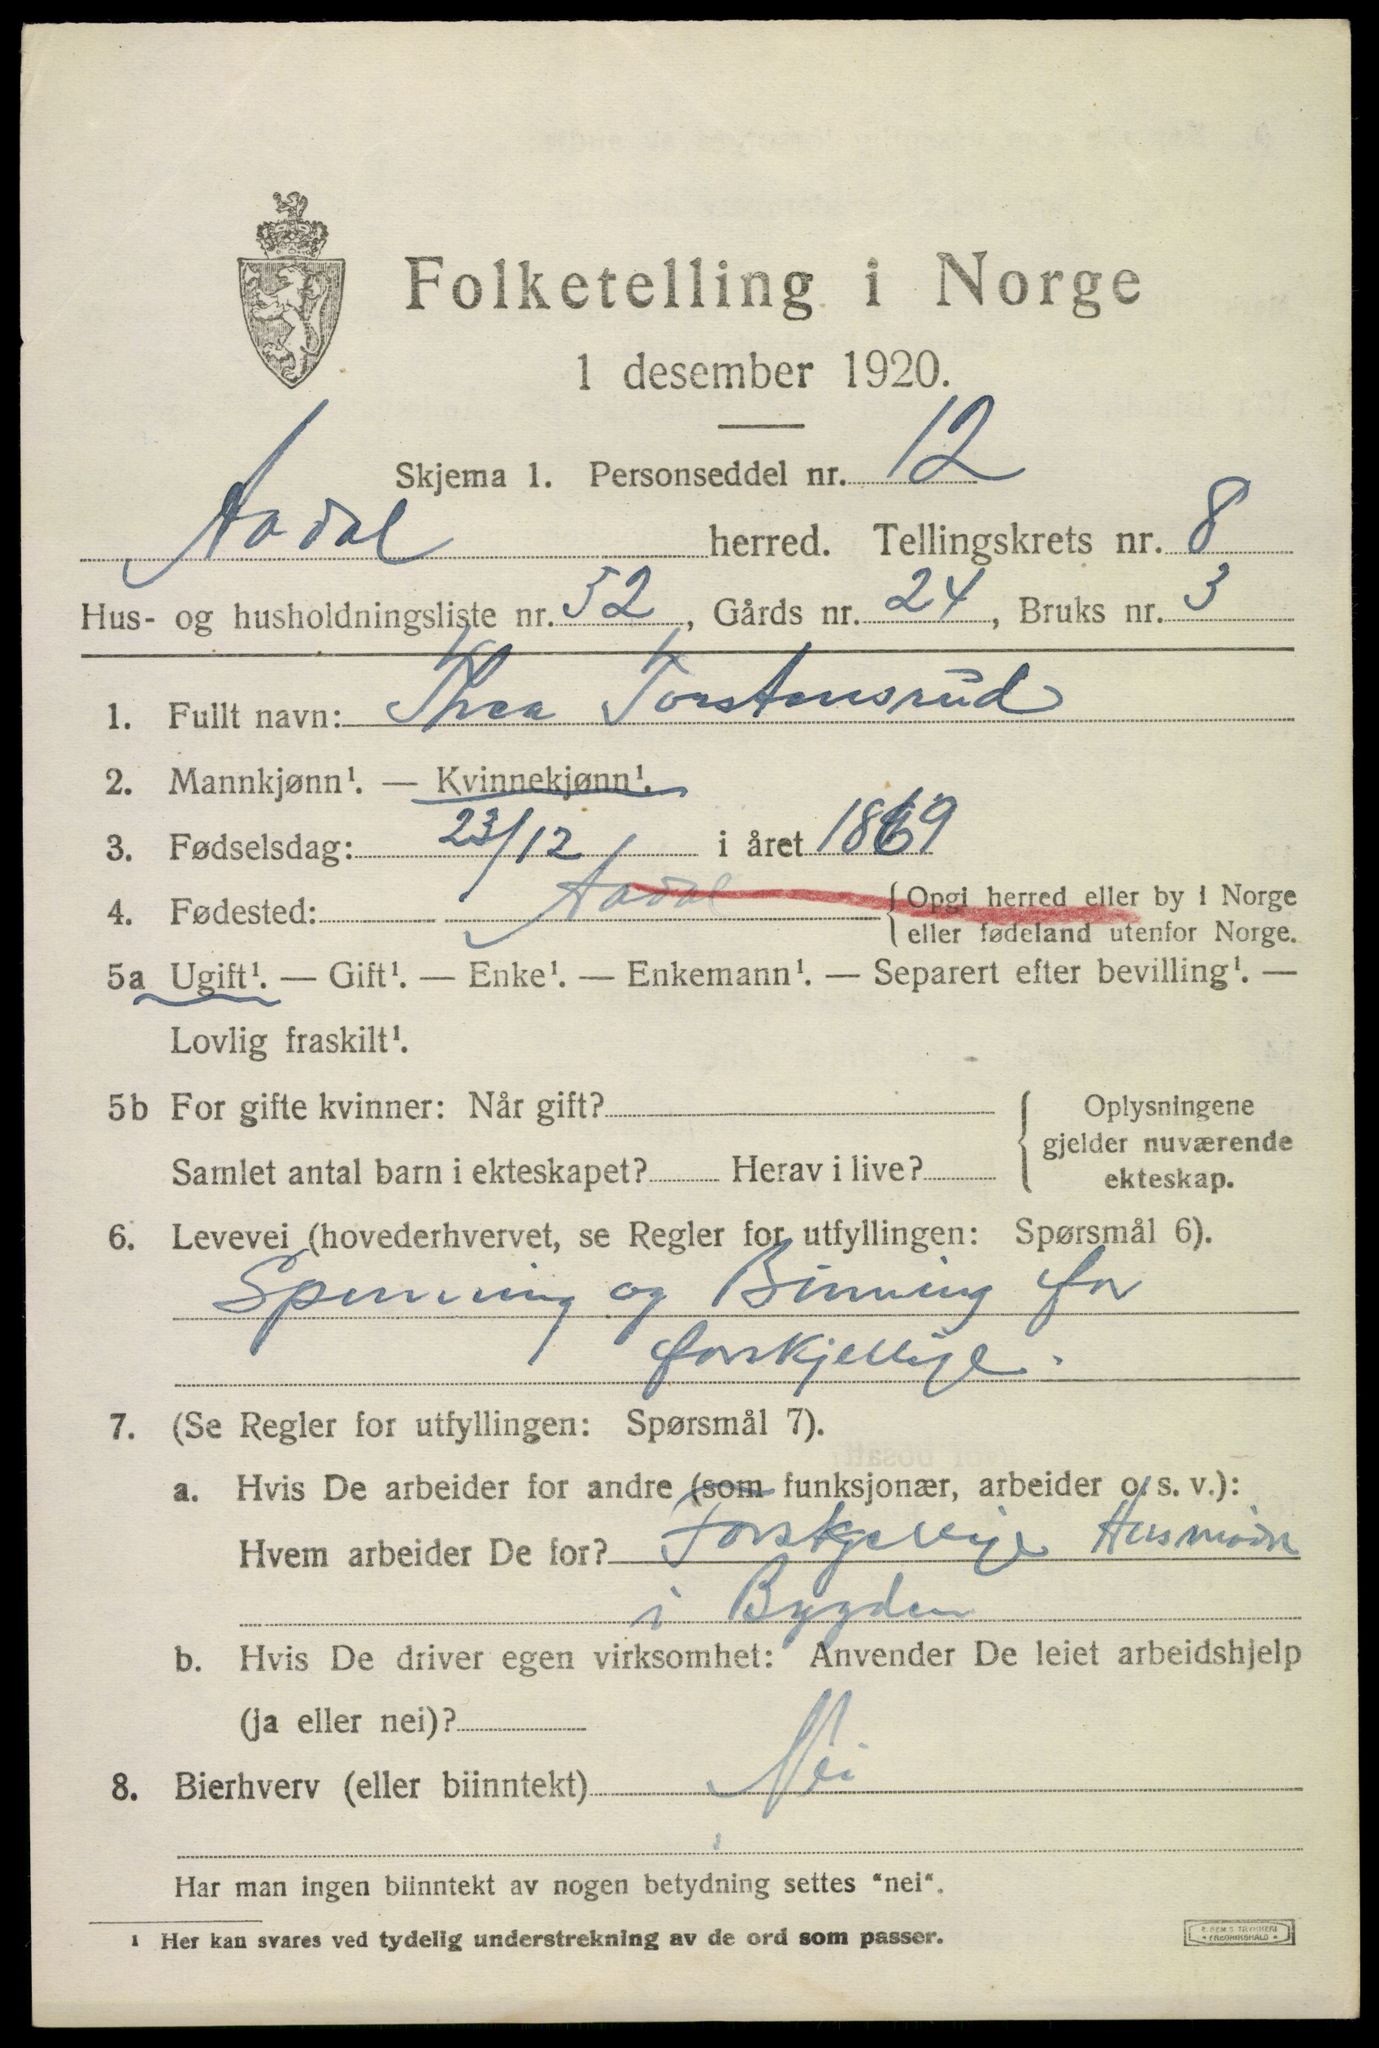 Folketelling i Norge
1 desember 1920.
Skjema 1. Personseddel nr. 12
Aadal herred. Tellingskrets nr. 8
Hus- og husholdningsliste nr. 52, Gårds nr. 24, Bruks nr. 3
1. Fullt navn: Thea Torstensrud
2. Mannkjønn¹. — Kvinnekjønn¹.
3. Fødselsdag: 23/12 i året 1869
4. Fødested: Aadal {Opgi herred eller by i Norge
eller fødeland utenfor Norge.
5a Ugift¹. — Gift¹. — Enke¹. — Enkemann¹. — Separert efter bevilling¹. —
Lovlig fraskilt¹.
5b For gifte kvinner: Når gift? { Oplysningene
gjelder nuværende
Samlet antal barn i ekteskapet? Herav i live? ekteskap.
6. Levevei (hovederhvervet, se Regler for utfyllingen: Spørsmål 6).
Spinning og Binning for
forskjellige.
7. (Se Regler for utfyllingen: Spørsmål 7).
a. Hvis De arbeider for andre (som funksjonær, arbeider o. s. v.):
Hvem arbeider De for? Forskjellige Husmødre
i Bygden
b. Hvis De driver egen virksomhet: Anvender De leiet arbeidshjelp
(ja eller nei)?
8. Bierhverv (eller biinntekt) Nei
Har man ingen biinntekt av nogen betydning settes "nei".
¹ Her kan svares ved tydelig understrekning av de ord som passer.